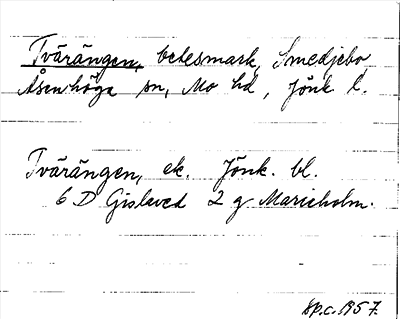 Tvärängen, betesmark, Smedjebo
Åsenhöga sn, Mo hd, Jönk l.
Tvärängen, ek. Jönk. bl.
6 D Gislaved 2 g Marieholm.
Sp.c. 1957.